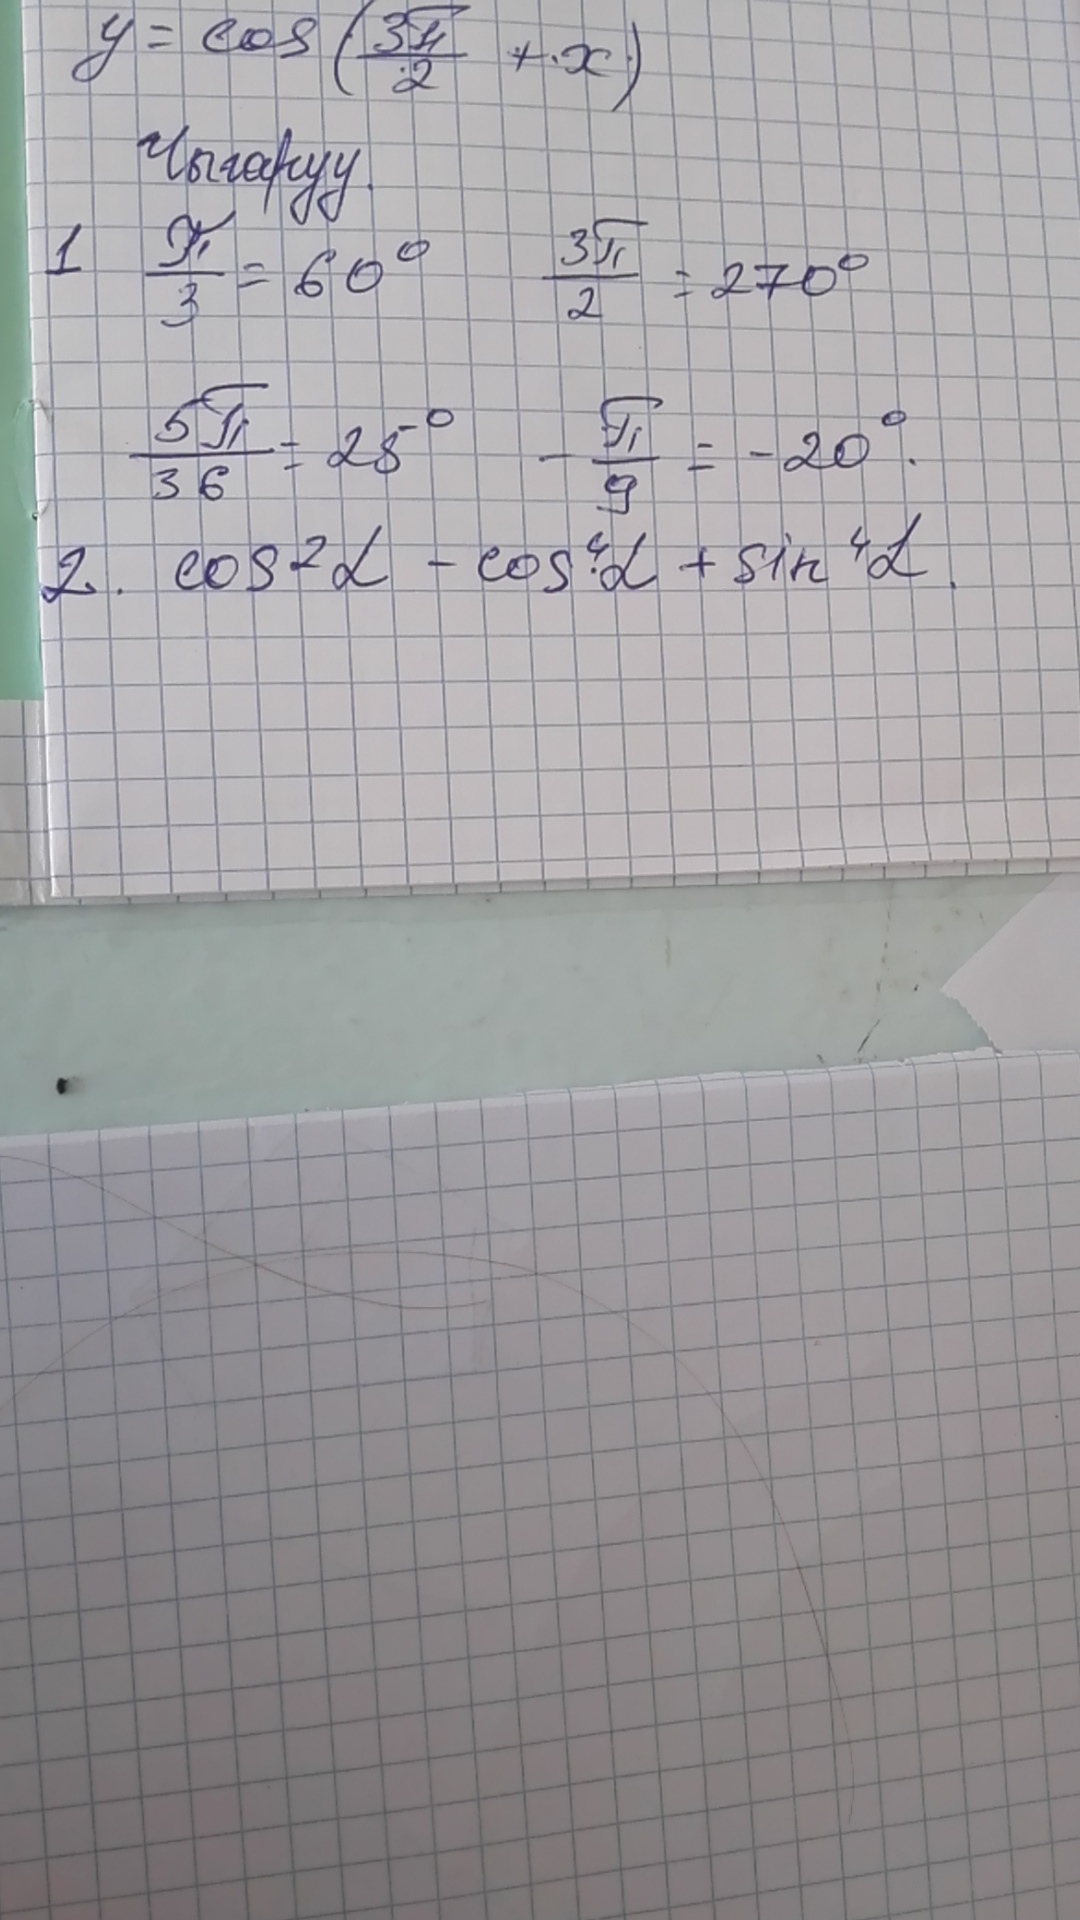 y = cos(3π/2 + x)
Чыгаруу.
1 π/3 = 60° 3π/2 = 270°
5π/36 = 25° -π/9 = -20°.
2. cos²α - cos⁴α + sin⁴α.